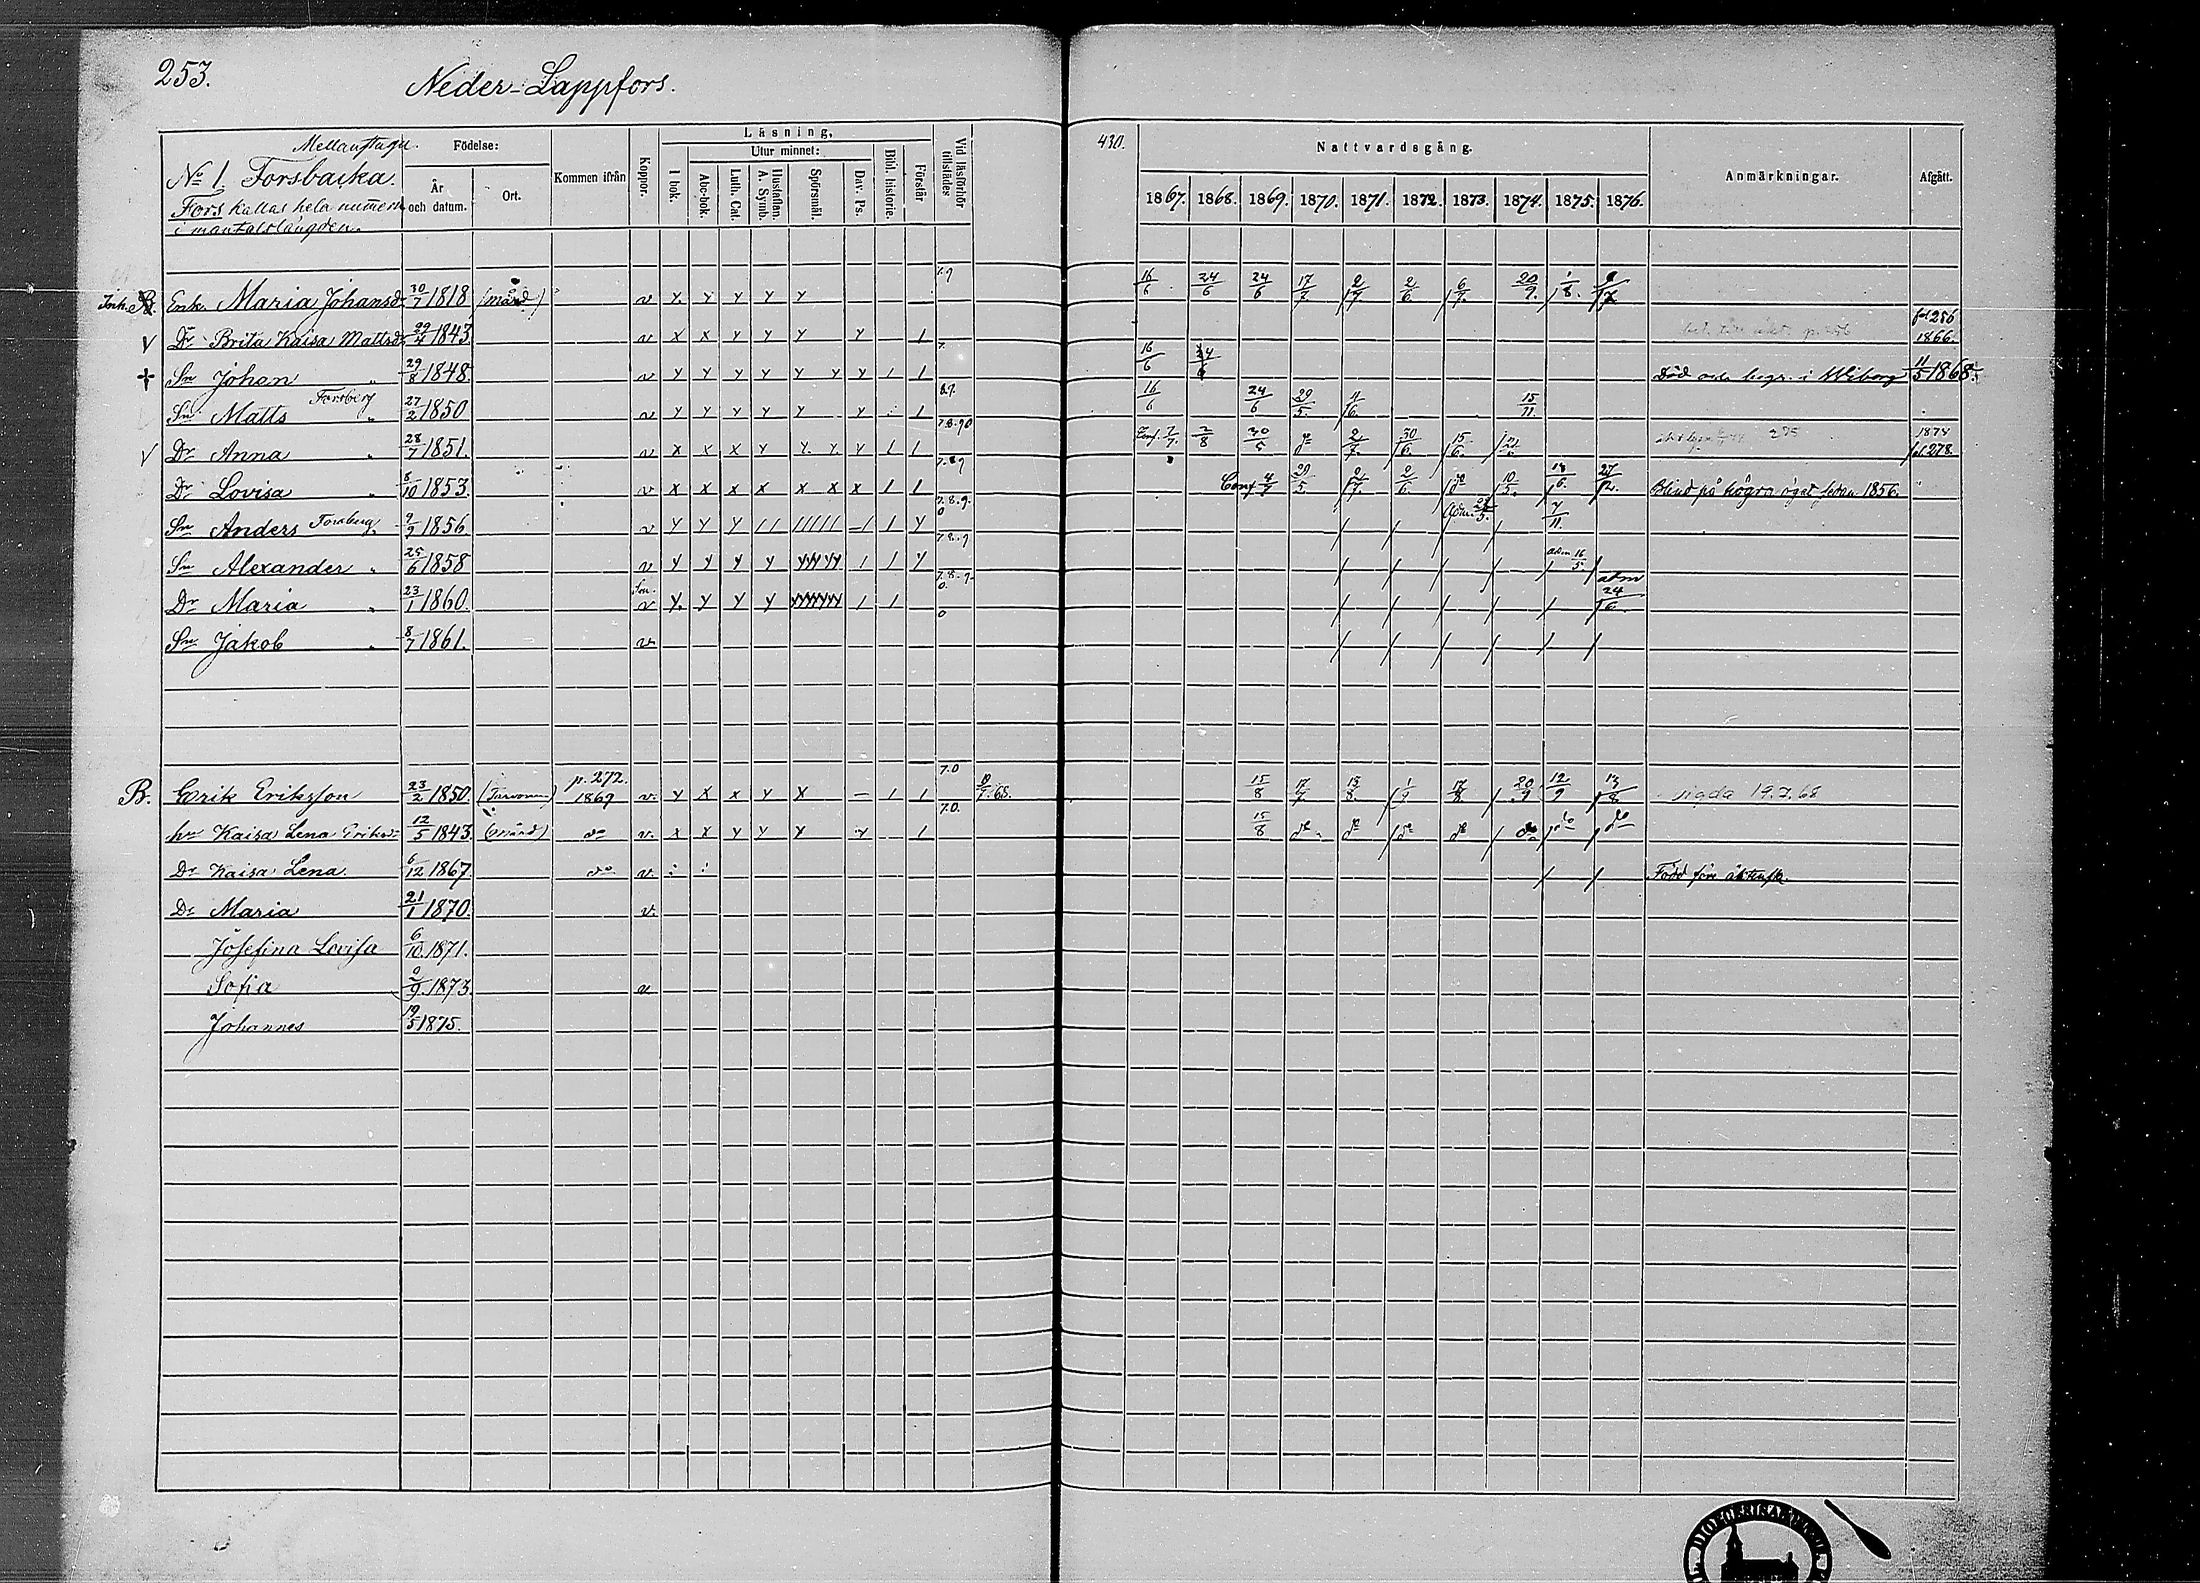 253.
Neder-Lappfors.
430.
Mellanstugu.
No 1 Forsbacka.
Fors kallas hela numern
i mantalslängden.
Födelse:
År och datum.
Ort.
Kommen ifrån
Koppor.
Läsning,
I bok.
Utur minnet:
Abc-bok.
Luth. Cat.
Hustaflan. A. Symb.
Spörsmål.
Dav. Ps.
Bibl. historie.
Förstår
Vid läsförhör tillstädes
Nattvardsgång.
1867. 1868. 1869. 1870. 1871. 1872. 1873. 1874. 1875. 1876.
Anmärkningar.
Afgått.
Enk. Maria Johansd. 30/7 1818 v y y y y y 16/6 24/6 24/6 17/7 2/7 2/6 6/7 20/9 1/8
Dr Brita Kaisa Mattsd. 29/4 1843 v x x y y y y 1 fol 256 1866.
Sn Johan " 29/8 1848. v y y y y y y y 1 1 16/6 24/6 Död och begr. i Wiborg 11/5 1868.
Sn Matts Forsberg " 27/2 1850 v y y y y y y 1 16/6 24/6 29/5 4/6 15/11
Dr Anna " 28/7 1851. v x x x y y y y 1 1 Conf. 7/7 2/8 30/5 do 2/7 30/6 15/6 1874 fol 278
Dr Lovisa " 5/10 1853. v x x x x x x x 1 1 Conf 4/7 29/5 2/7 2/6 do 10/5 13/6 27/12 Blind på högra ögat sedan 1856.
Sn Anders Forsberg 9/9 1856. v y y y 1 y Adm. 24/5 7/11
Sn Alexander " 25/6 1858 v y y y y 1 1 y adm 16/5
Dr Maria " 23/1 1860. v y y y y 1 1 adm 24/6
Sn Jakob " 8/7 1861. v
B. Erik Eriksson 23/2 1850. p. 272. 1869 v. y x x y x 1 1 7.0 15/8 17/7 13/8 1/9 17/8 20/9 12/9 13/8 vigda 19.7.68
hu Kaisa Lena Eriksd. 12/5 1843. do v. x x y y y y 1 7.0. 15/8 do do do do do do do
Dr Kaisa Lena. 6/12 1867. do v. Född före äktensk.
Dr Maria 21/1 1870. v.
Josefina Lovisa 6/10 1871.
Sofia 2/9 1873. v
Johannes 19/5 1875.